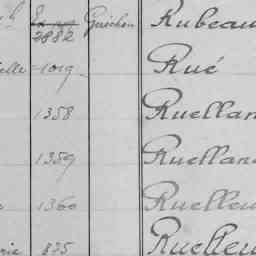 2882 Guichon Rubeau
elle 1019 Rué
1358 Ruelland
1359 Ruelland
1360 Ruelleu
rie 875 Ruelleu